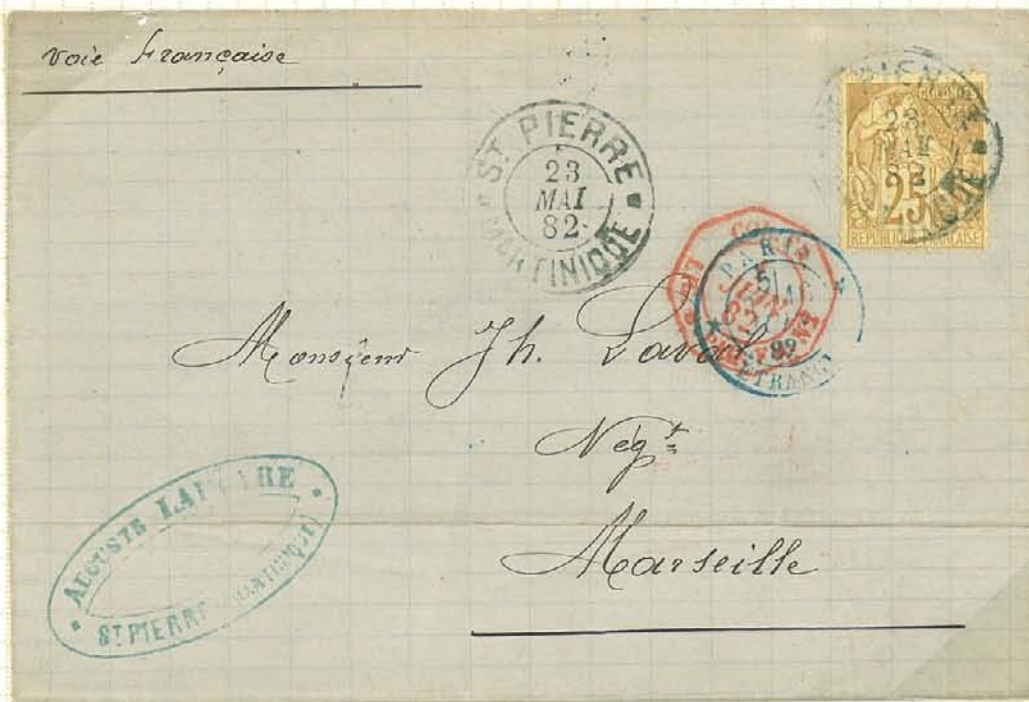 voie Française
ST PIERRE
23
MAI
82
MARTINIQUE
23
MAI
82
25
RÉPUBLIQUE FRANÇAISE
COL.
PARIS
JUIN
82
ETRANG
Monsieur Jh. Laval
Négt
Marseille
AUGUSTE
ST PIERRE (MARTINIQUE)